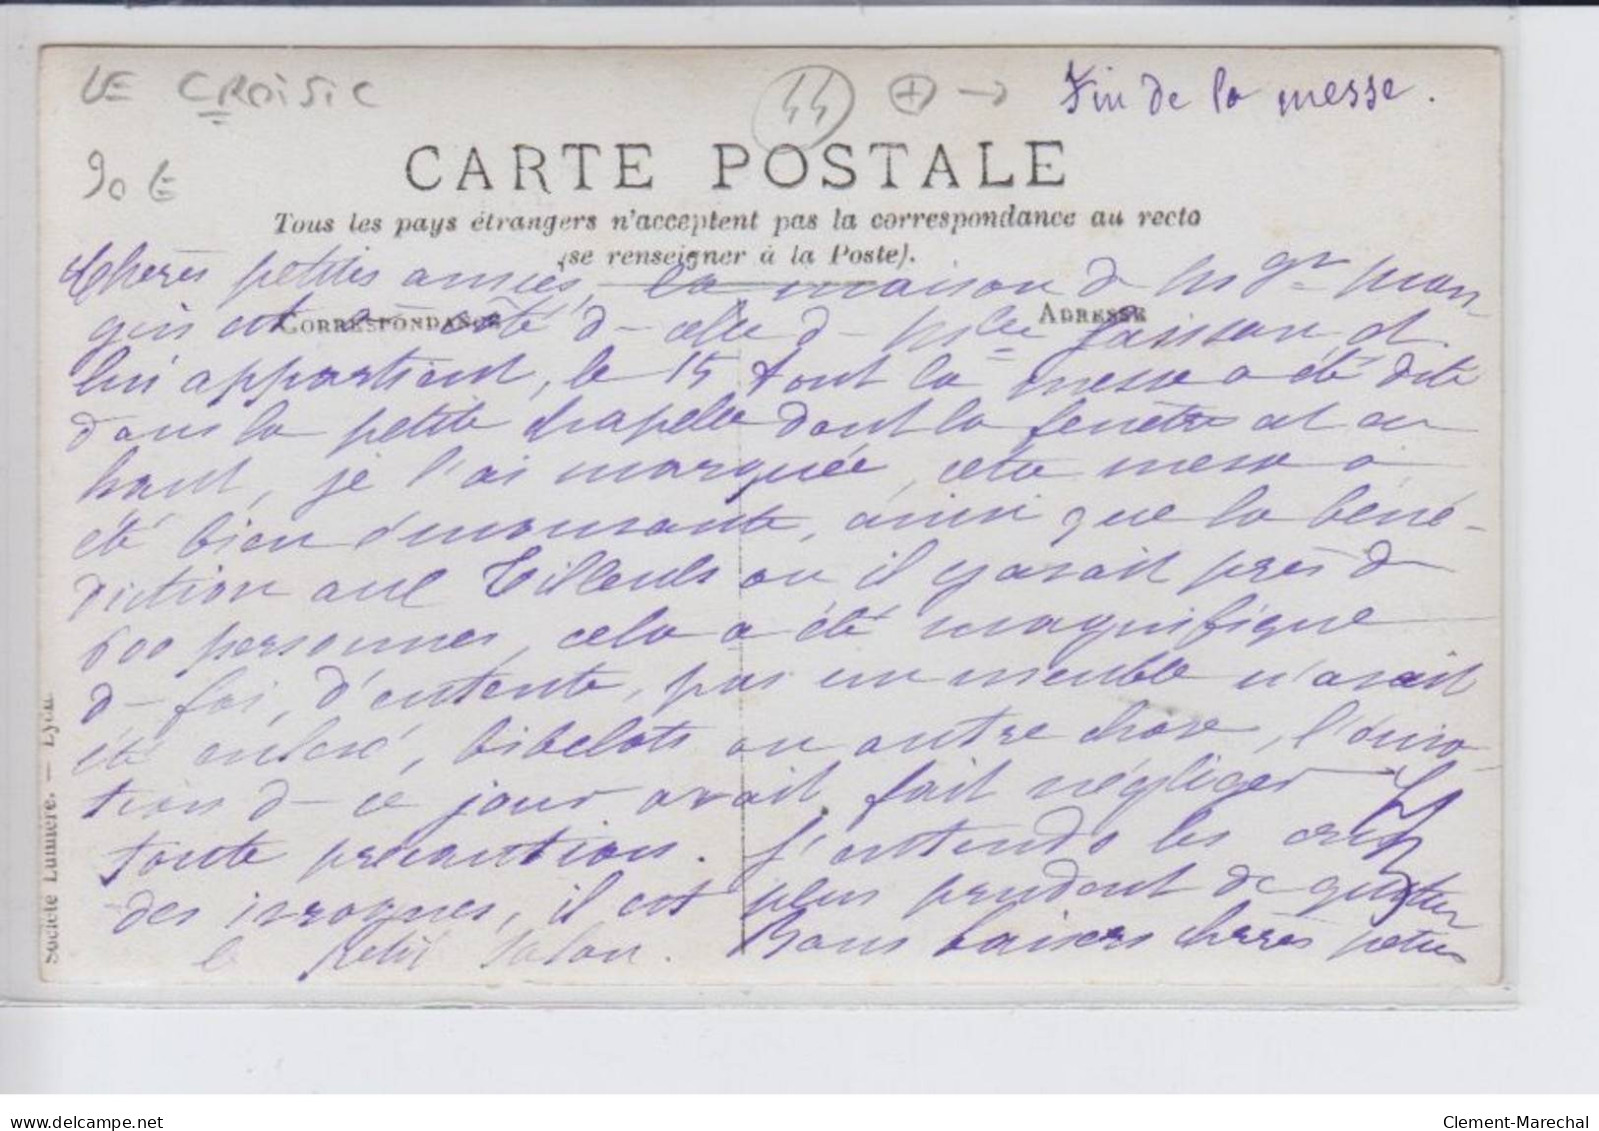 LE CROISIC
44
+ →
Fin de la messe.
90 €
CARTE POSTALE
Tous les pays étrangers n'acceptent pas la correspondance au recto
(se renseigner à la Poste).
CORRESPONDANCE
ADRESSE
Chères petites amies, la maison d Mgr Man-
gin est à côté d celle d Mlle et
lui appartient, le 15 Aout la messe a été dite
dans la petite chapelle dont la fenetre est en
haut, je l'ai marquée, cette messe a
été bien émouvante, ainsi que la béné-
diction aux Tilleuls ou il y avait près d
600 personnes, cela a été magnifique
d foi, d'entente, pas un meuble n'avait
été enlevé, bibelots ou autre chose, l'émo-
tion d ce jour avait fait négliger
toute précaution. J'entends les cris
des ivrognes, il est plus prudent de quitter
le petit salon. Bons baisers chères petites
Société Lumière. — Lyon.
delcampe.net
Clement-Marechal